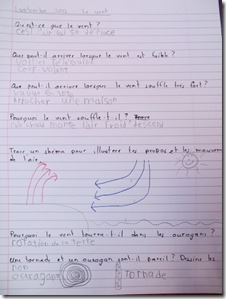 le vent
Qu'est-ce que le vent?
Que peut-il arriver lorsque le vent est faible?
cerf-volant
Que peut-il arriver lorsque le vent souffle très fort?
Arracher une maison
Pourquoi le vent souffle-t-il?
air chaud monte l'air froid descend
Trace un schéma pour illustrer tes propos et les mouvements
de l'air.
Pourquoi le vent tourne-t-il dans les ouragans?
rotation de la terre
Une tornade et un ouragan sont-il pareil? Dessine les
non
ouragan
Tornade